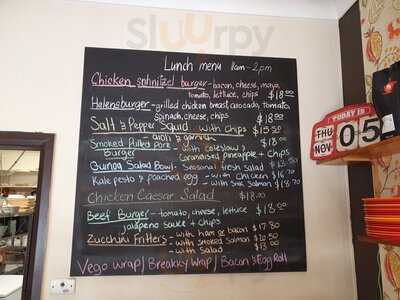 Slurpy
Lunch menu 11am - 2pm
Chicken schnitzel burger - bacon, cheese, mayo,
tomato, lettuce, chips $18.00
Helensburger - grilled chicken breast, avocado, tomato,
spinach, cheese, chips $18.00
Salt & Pepper Squid with Chips $15.50
- aioli & garnish
Smoked Pulled Pork - with coleslaw, $18.00
Burger Caramalised pineapple + Chips
Quinoa Salad Bowl - Seasonal fresh salad $13.50
Kale pesto & poached egg - with Chicken $16.70
- with Smk Salmon $18.70
Chicken Caesar Salad $18.00
Beef Burger - tomato, cheese, lettuce $18.50
jalapeno sauce + chips
Zucchini Fritters - with ham or bacon $17.80
- with smoked Salmon $20.50
- with Salad $18.00
Vego wrap / Breakky Wrap / Bacon & Egg Roll
TODAY IS
THU
NOV
05